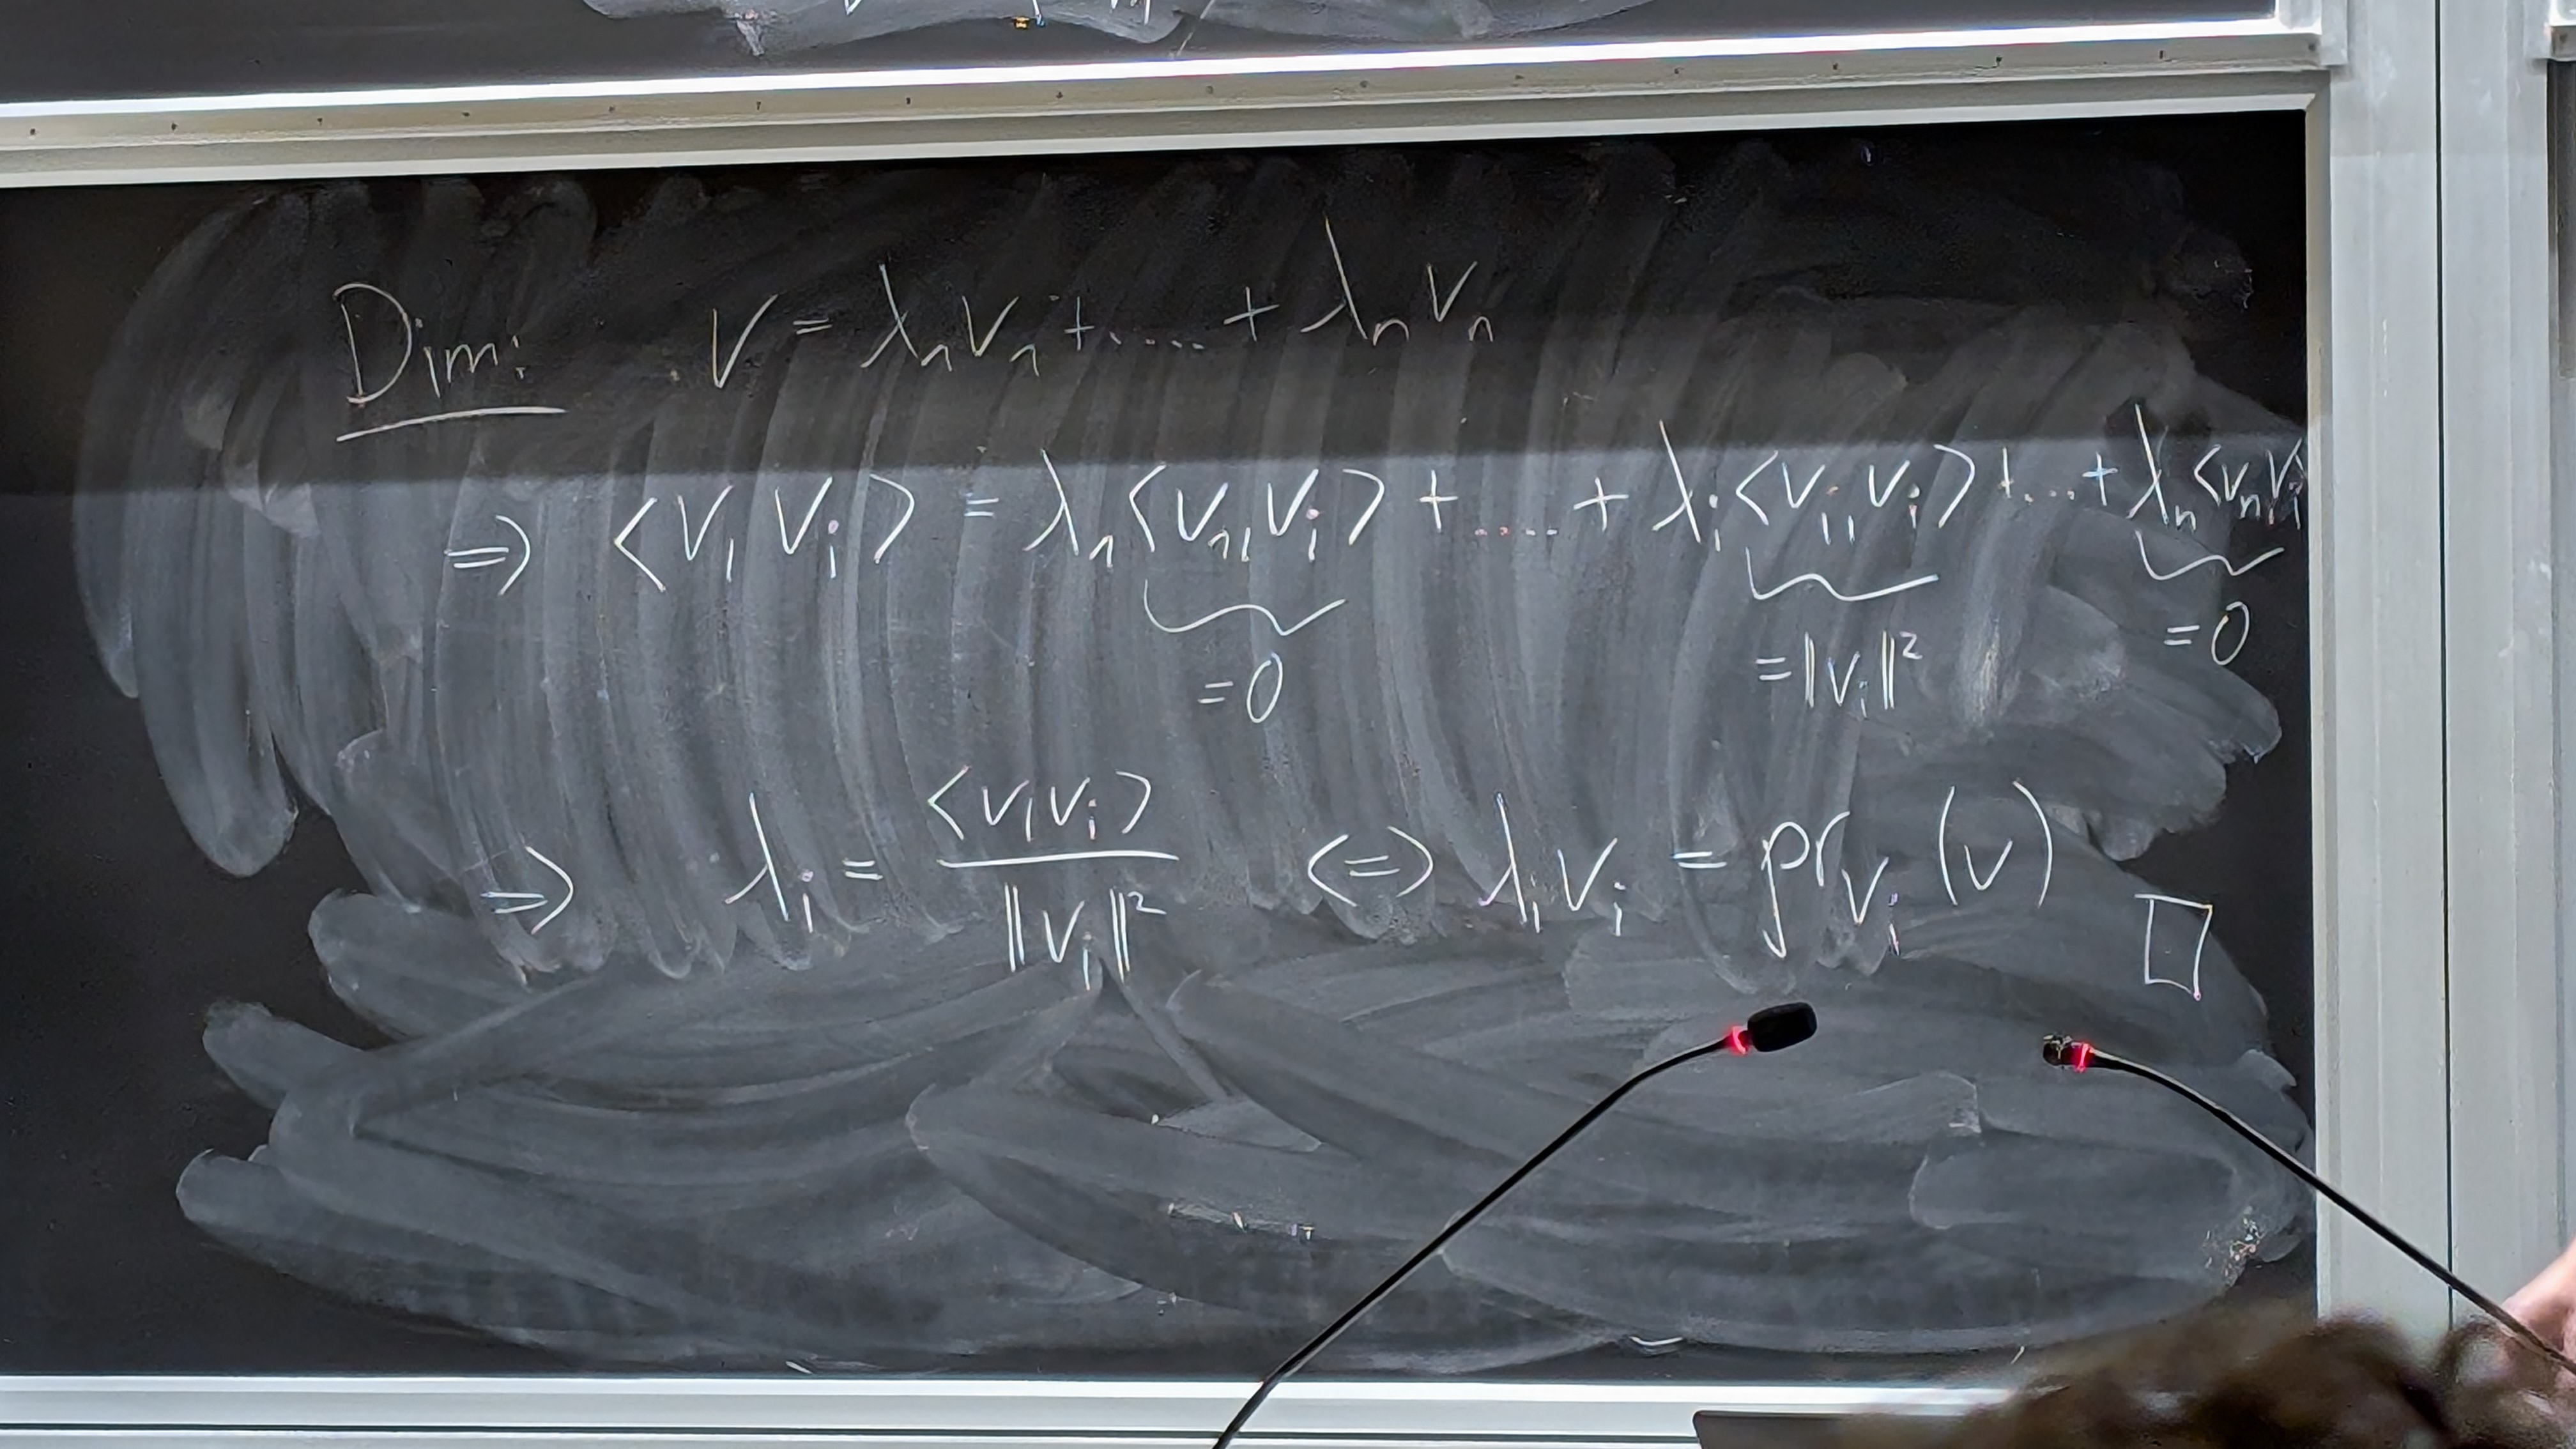 Dim: v = λ₁v₁ + ..... + λₙvₙ
⇒ <v, vᵢ> = λ₁<v₁, vᵢ> + ..... + λᵢ<vᵢ, vᵢ> + .... + λₙ<vₙ, vᵢ>
= 0 = ||vᵢ||² = 0
⇒ λᵢ = <v, vᵢ> / ||vᵢ||² <=> λᵢvᵢ = pr_vᵢ (v) □